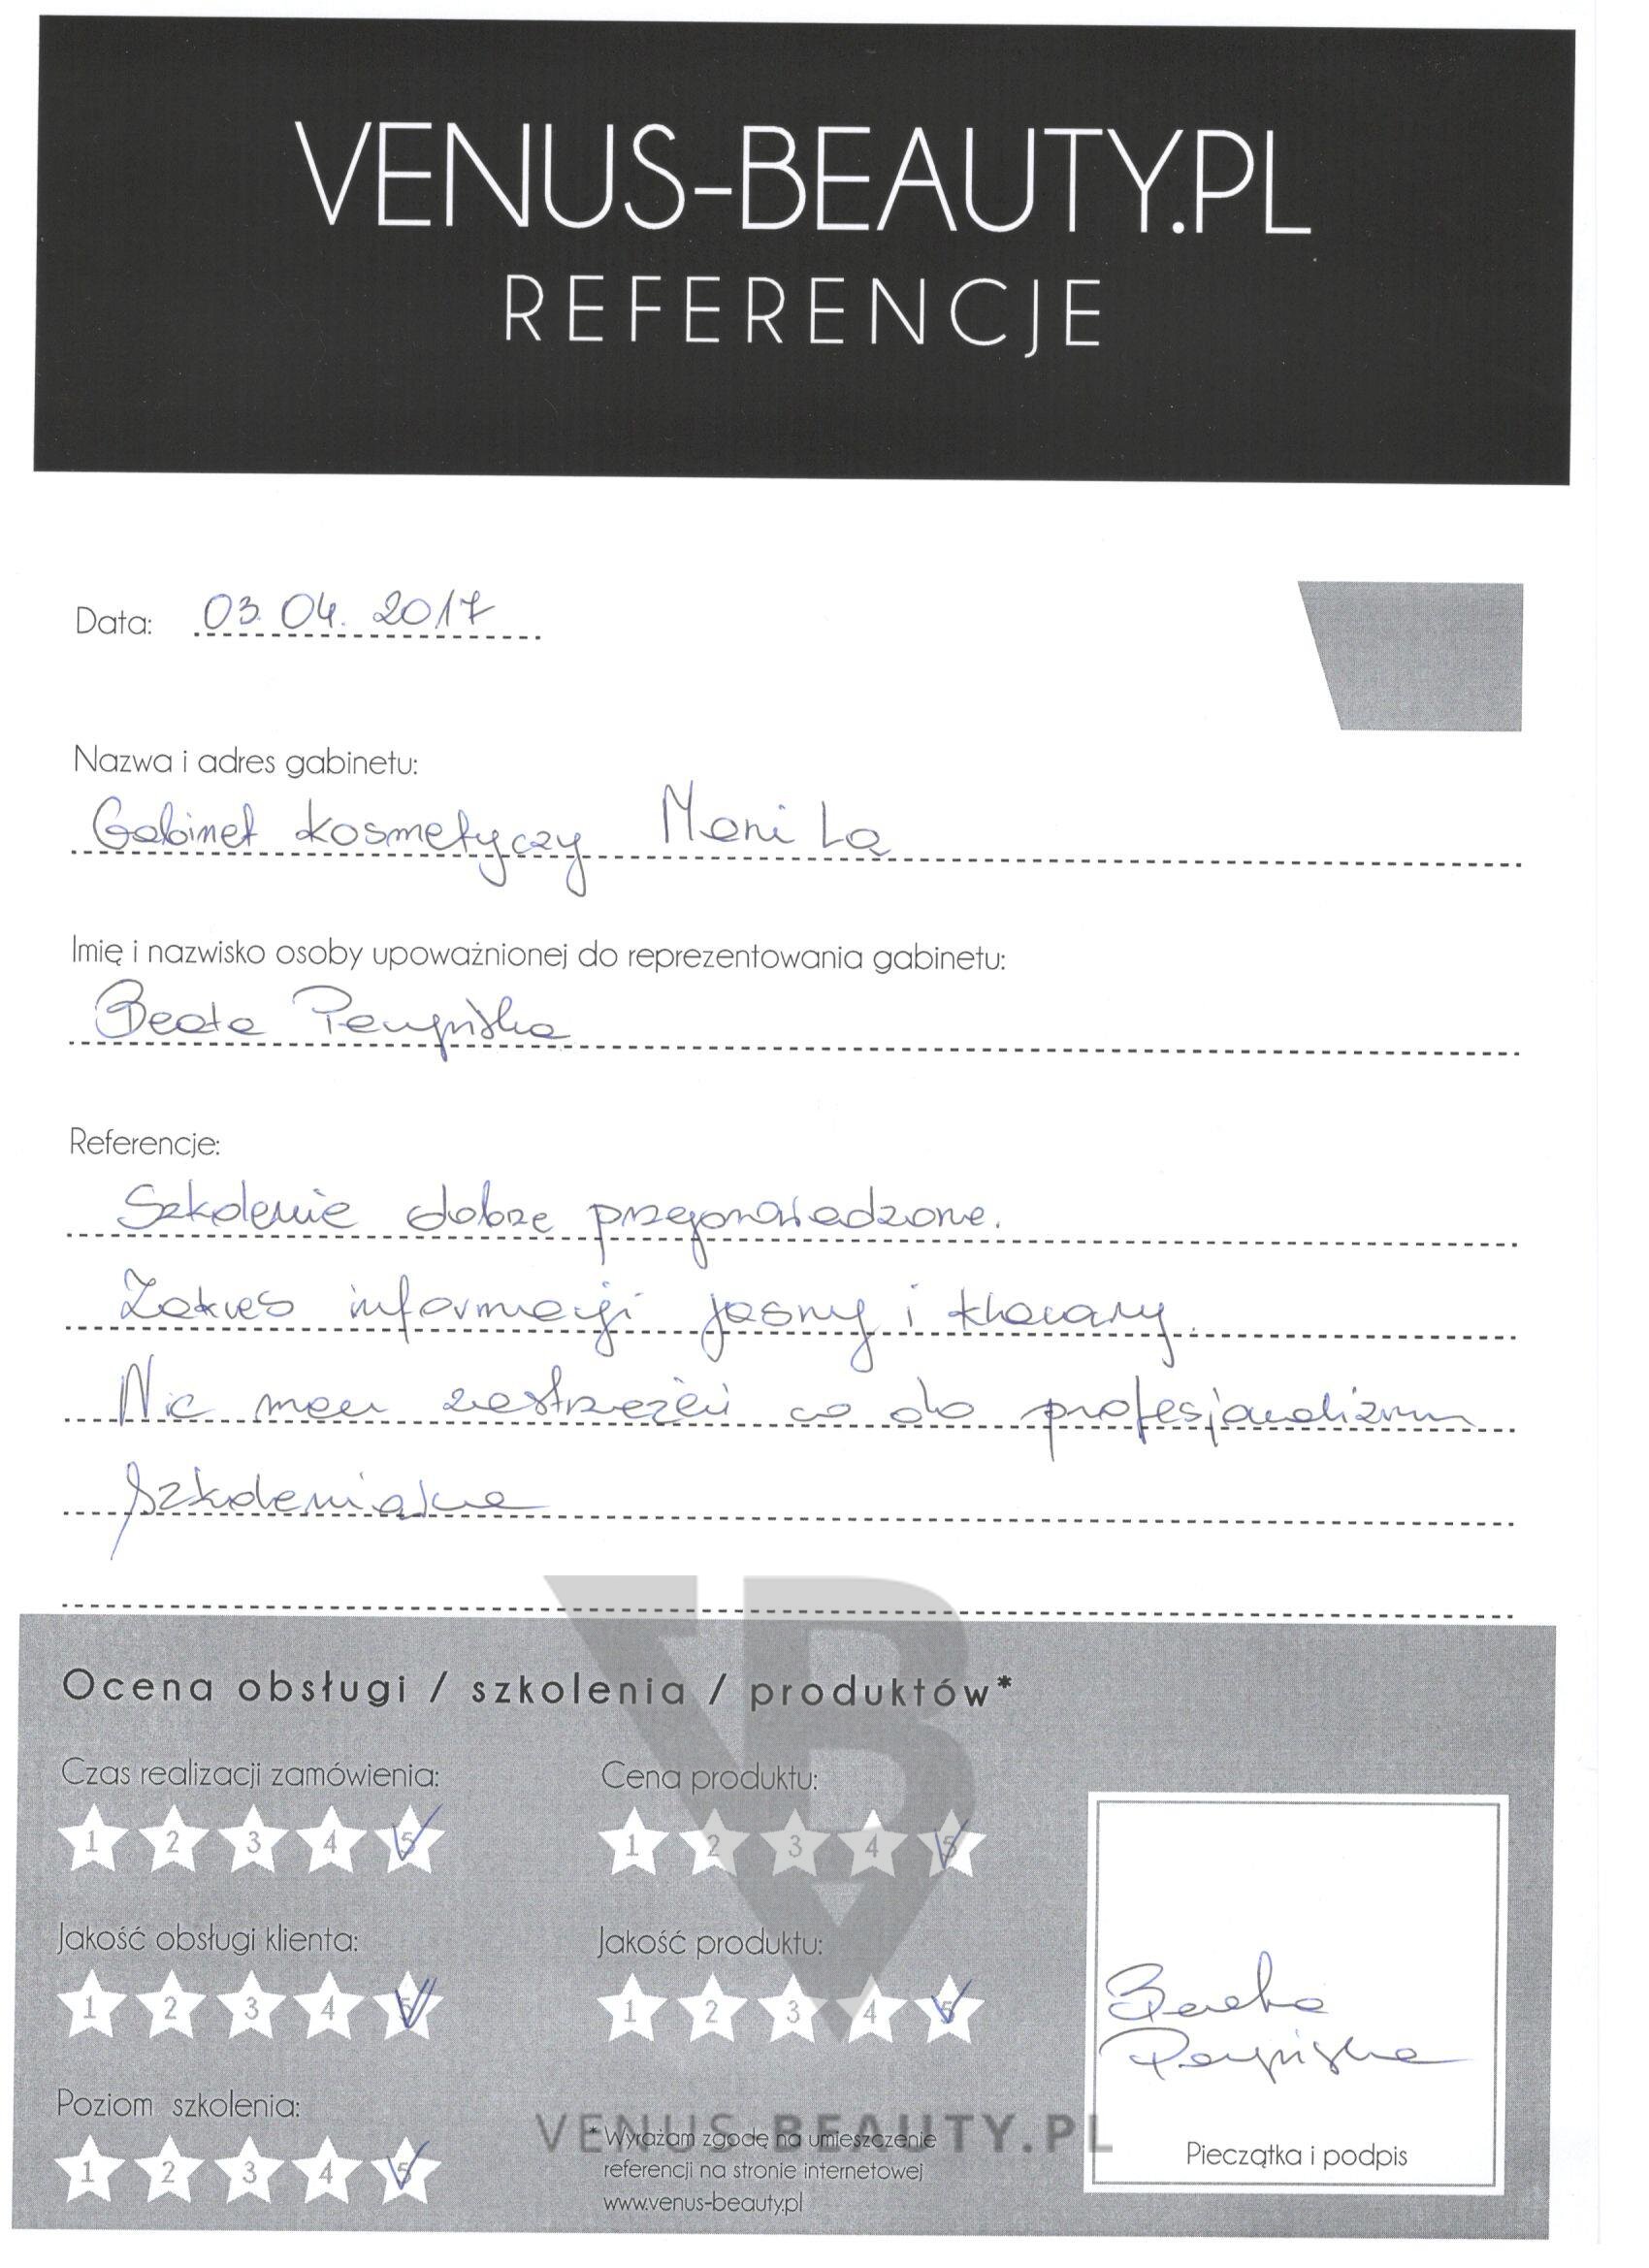 VENUS-BEAUTY.PL
REFERENCJE
Data: 03.04.2017
Nazwa i adres gabinetu:
Gabinet kosmetyczy
Imię i nazwisko osoby upoważnionej do reprezentowania gabinetu:
Beata
Referencje:
Szkolenie dobrze
Zakres informacji jasny i
Nic mam zastrzeżeń co do profesjonalizmu
Ocena obsługi / szkolenia / produktów*
Czas realizacji zamówienia:
1 2 3 4 5
Cena produktu:
1 2 3 4 5
Jakość obsługi klienta:
1 2 3 4 5
Jakość produktu:
1 2 3 4 5
Poziom szkolenia:
1 2 3 4 5
VENUS-BEAUTY.PL
*Wyrażam zgodę na umieszczenie
referencji na stronie internetowej
www.venus-beauty.pl
Beata
Pieczątka i podpis